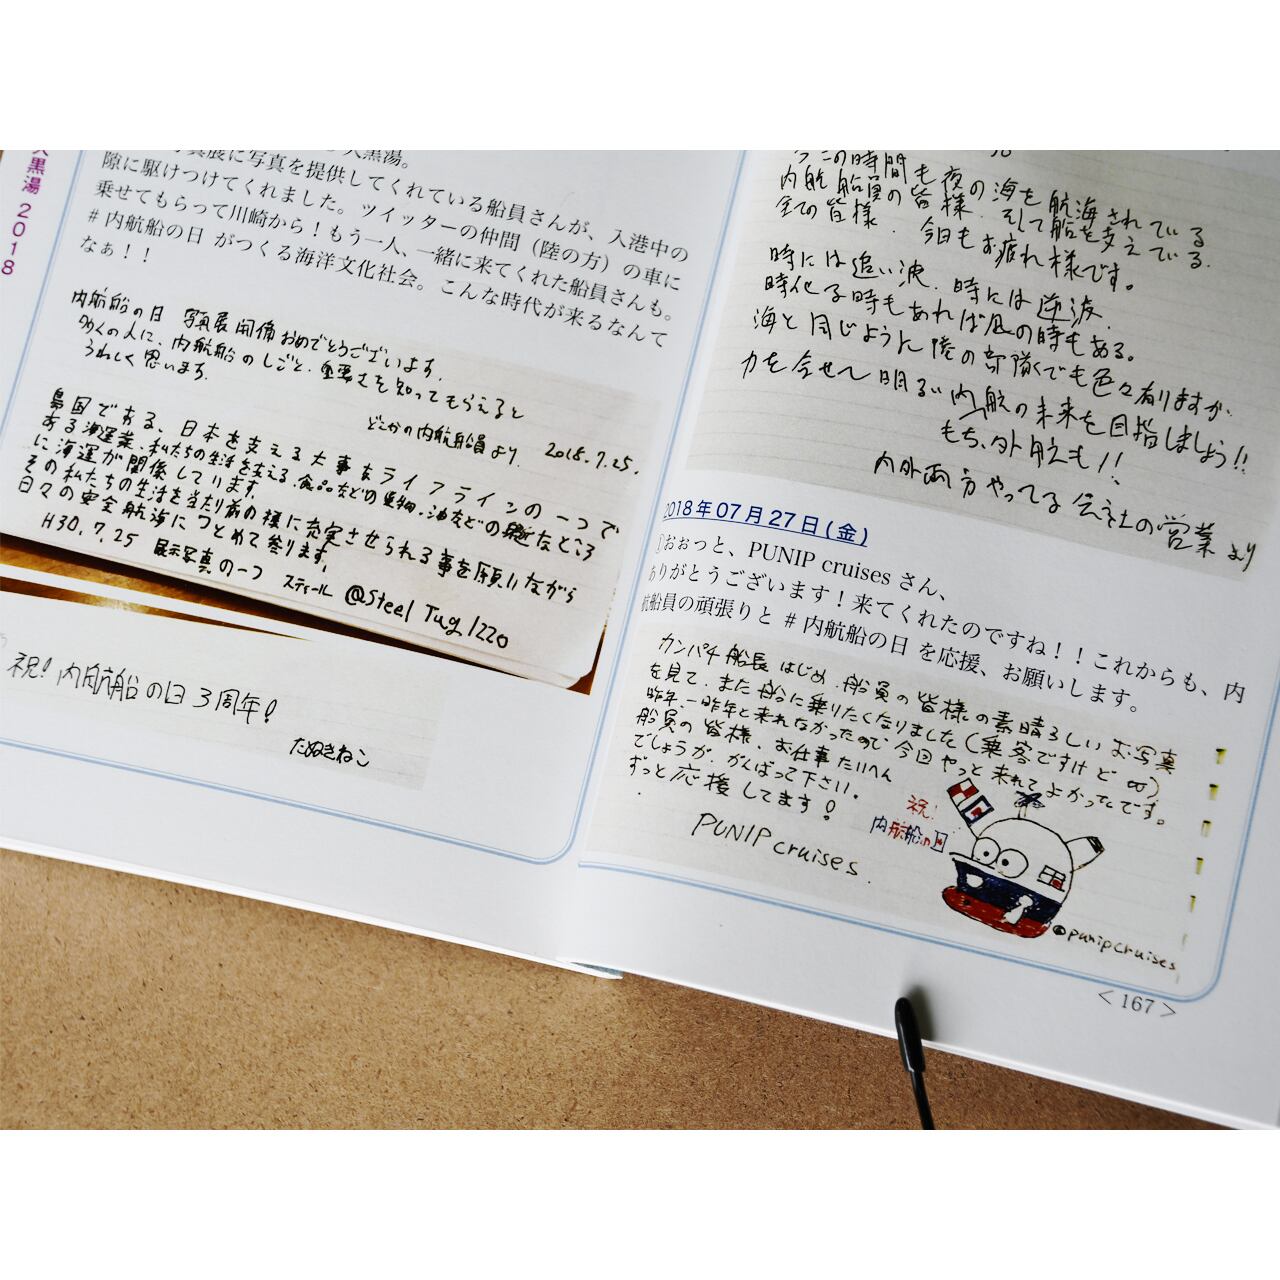 大黒湯 2018
大黒湯。
写真展に写真を提供してくれている船員さんが、入港中の
隙に駆けつけてくれました。ツイッターの仲間（陸の方）の車に
乗せてもらって川崎から！もう一人、一緒に来てくれた船員さんも。
# 内航船の日 がつくる海洋文化社会。こんな時代が来るなんて
なぁ！！
内航船の日 写真展開催おめでとうございます。
多くの人に、内航船のしごと、重要さを知ってもらえると
うれしく思います。
どこかの内航船員より 2018.7.25.
島国である、日本を支える大事なライフラインの一つで
ある海運業、私たちの生活を支える、食品などの貨物、油などの身近なところ
に海運が関係しています。
その私たちの生活を当たり前の様に充実させられる事を願いながら
日々の安全航海につとめて参ります。
H30.7.25 展示写真の一つ スティール @Steel Tug 1220
祝！内航船の日3周年！
たぬきねこ
今この時間も夜の海を航海されている
内航船員の皆様、そして船を支えている
全ての皆様、今日もお疲れ様です。
時には追い波、時には逆波、
時化る時もあれば凪の時もある。
海と同じように陸の部隊でも色々有りますが、
力を合せて明るい内航の未来を目指しましょう!!
もち、外航も!!
内外両方やってる会社の営業より
2018年07月27日(金)
おぉっと、PUNIP cruises さん、
ありがとうございます！来てくれたのですね！！これからも、内
航船員の頑張りと # 内航船の日 を応援、お願いします。
カンパチ船長はじめ、船員の皆様の素晴らしいお写真
を見て、また船に乗りたくなりました(乗客ですけど)
昨年、一昨年と来れなかったので、今回やっと来れてよかったです。
船員の皆様、お仕事たいへん
でしょうが、がんばって下さい。
ずっと応援してます！
PUNIP cruises.
祝！
内航船の日
@punipcruises
< 167 >